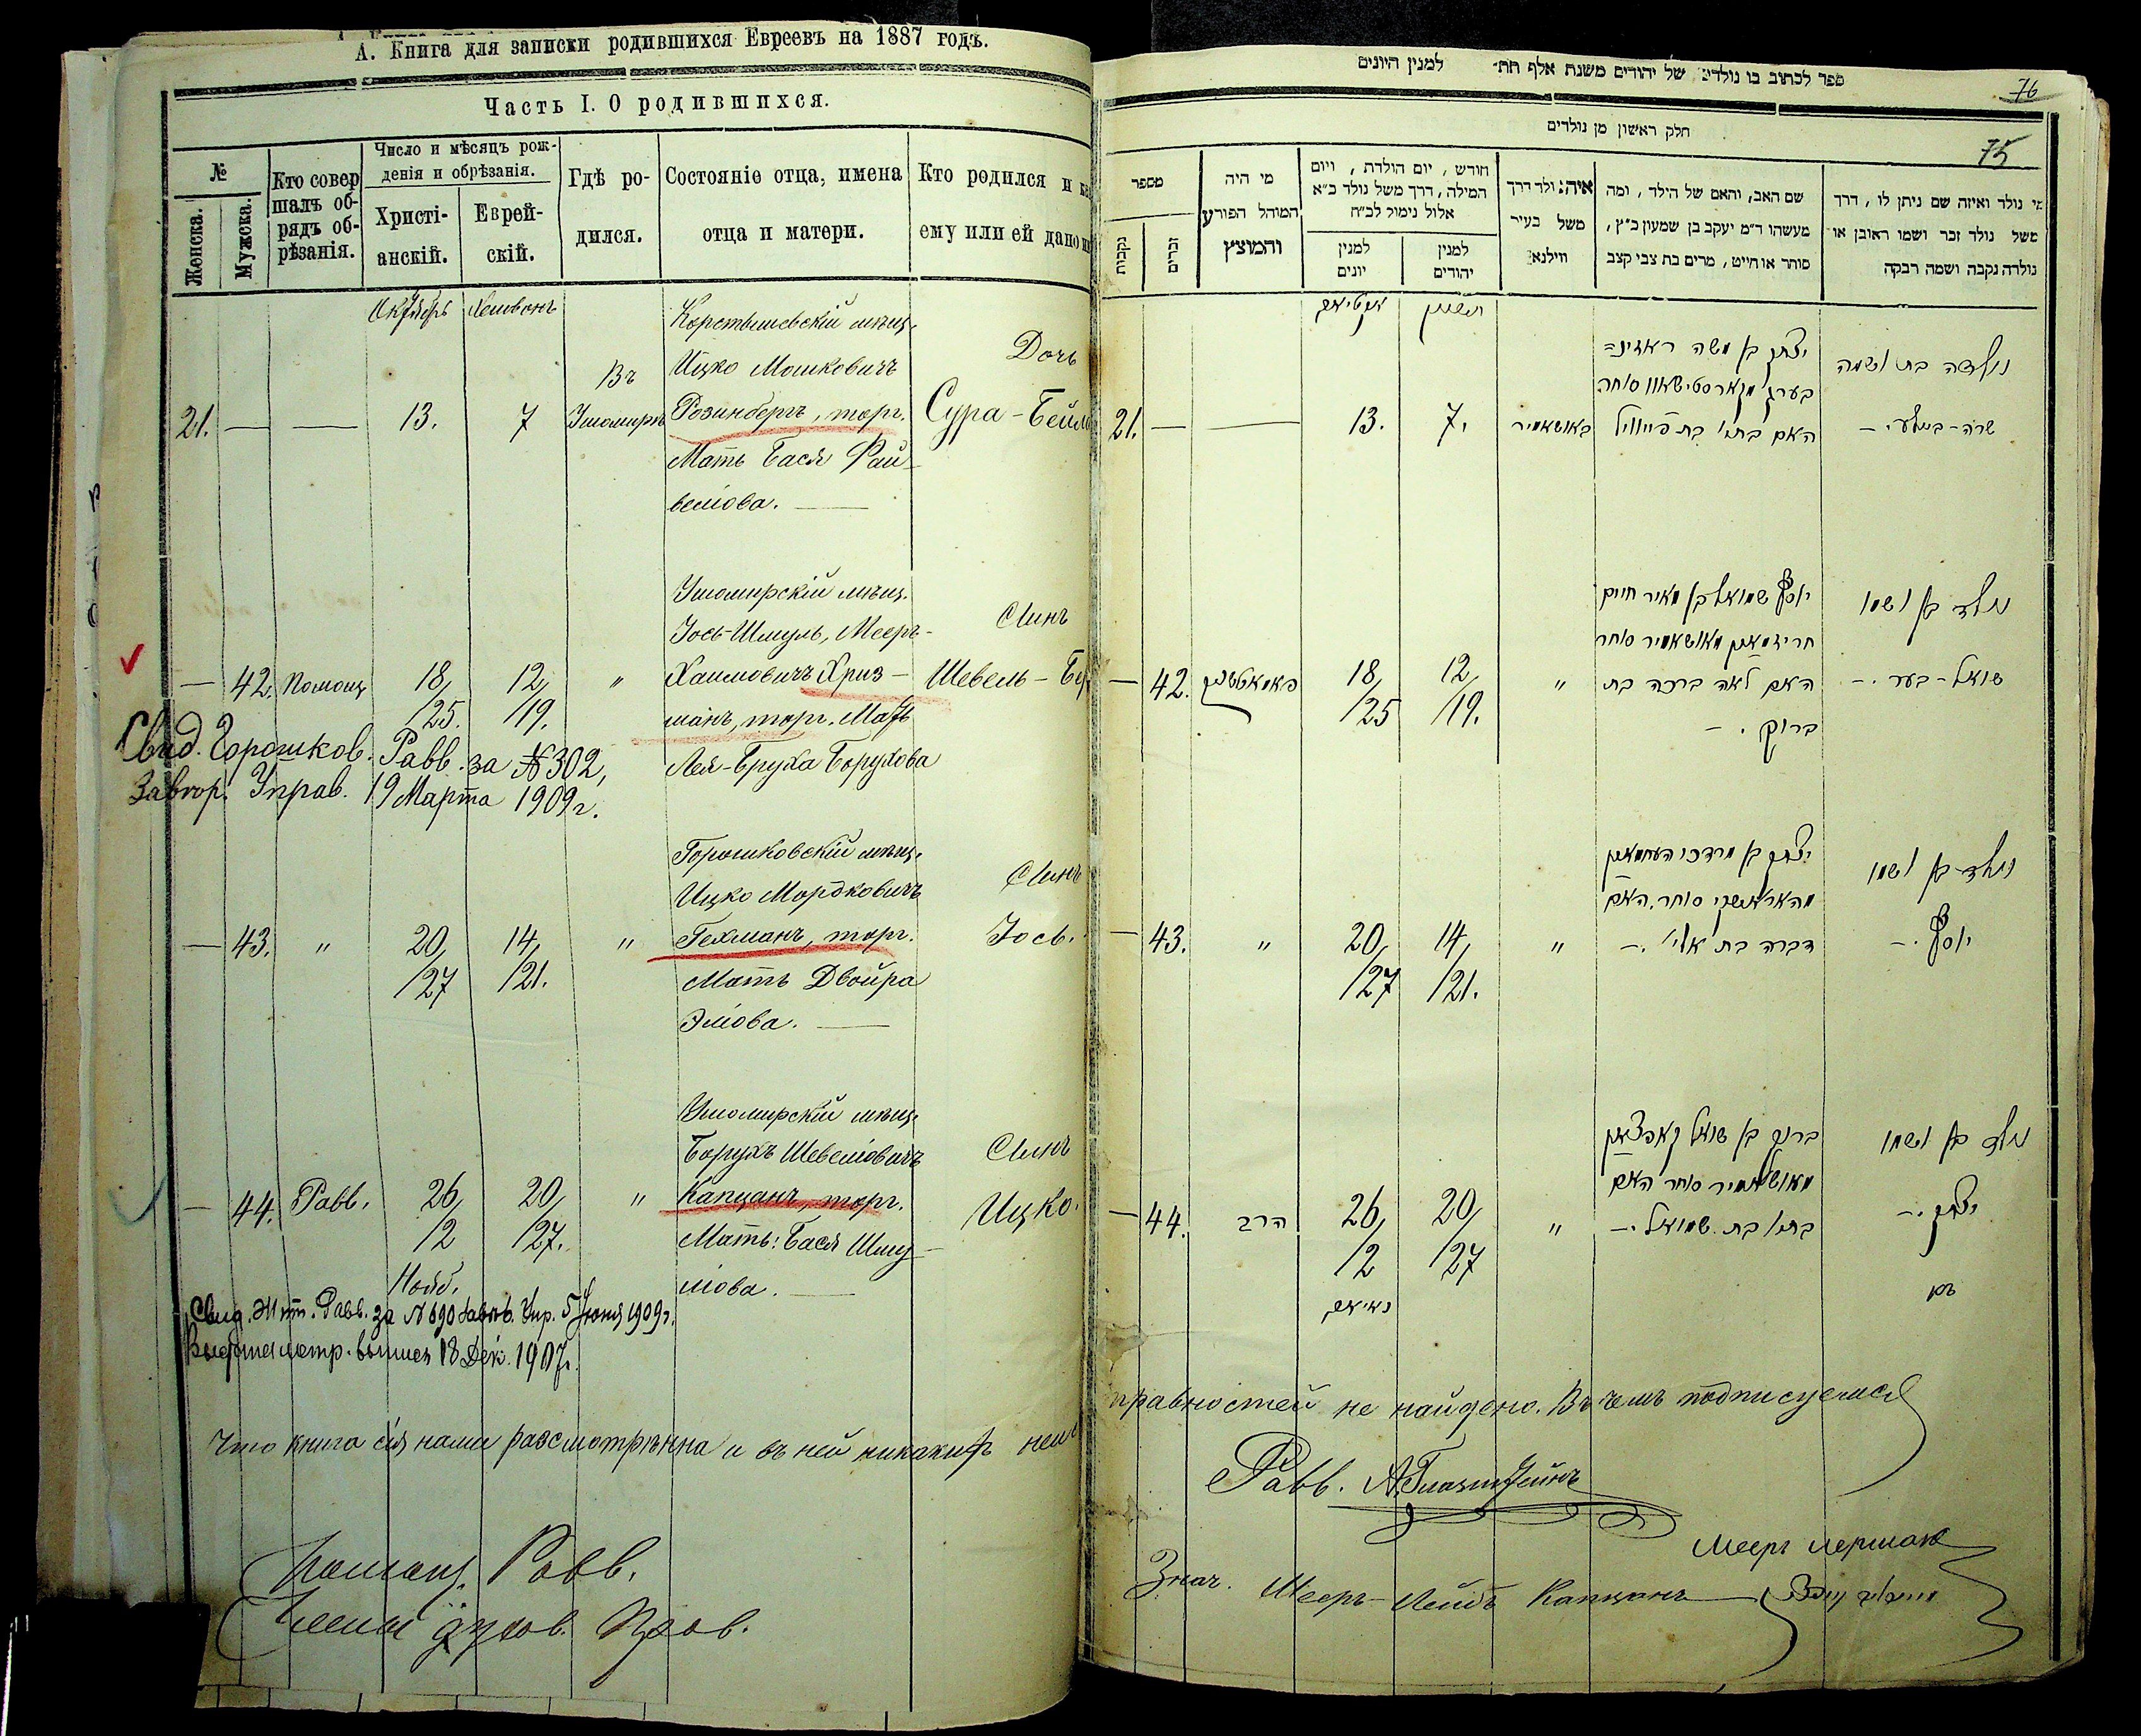 А. Книга для записки родившихся Евреевъ на 1887 годъ.
Часть I. О родившихся.
№
Женска.
Мужска.
Кто совер
шалъ об-
рядъ об-
рѣзанія.
Число и мѣсяцъ рож-
денія и обрѣзанія.
Христі-
анскій.
Еврей-
скій.
Гдѣ ро-
дился.
Состояніе отца, имена
отца и матери.
Кто родился и
ему или ей дано
Октябрь
Хешвонъ
21.
13.
7
Въ
Ушомирѣ
Коростышевскій мѣщ.
Ицко Мошковичъ
Розинбергъ, торг.
Мать Бася Фай-
велова.
Дочь
Сура-Бейл
42.
Помощ
18/
/25.
12/
/19.
"
Ушомирскій мѣщ.
Іось-Шмуль, Мееръ-
Хаимовичъ Хриз-
манъ, торг. Мать
Лея-Бруха Борухова
Сынъ
Шевель-Бе
Свид. Горошков. Равв. за № 302,
19 Марта 1909 г.
43.
"
20/
/27
14/
/21.
"
Горошковскій мѣщ.
Ицко Мордковичъ
Гехманъ, торг.
Мать Двойра
Элова.
Сынъ
Іось.
44.
Равв.
26/
/2
Нояб.
20/
/27.
"
Ушомирскій мѣщ.
Борухъ Шевелевичъ
Капцанъ, торг.
Мать: Бася Шму-
лова.
Сынъ
Ицко.
Свид. Жит. Равв. за № 690 Упр. 5 Іюня 1909 г.
18 Дек. 1907 г.
Что книга сія нами разсмотрѣнна и въ ней никакихъ неис
Помощ. Равв.
Члены духов. Прав.
ספר לכתוב בו נולדים של יהודים משנת אלף תת״ למנין היונים
76
חלק ראשון מן נולדים
75
מספר
נקבות
זכרים
מי היה
המוהל הפורע
והמוצץ
חודש, יום הולדת, ויום
המילה, דרך משל נולד כ״א
אלול נימול לכ״ח
למנין
יונים
למנין
יהודים
איה נולד דרך
משל בעיר
ווילנא
שם האב, והאם של הילד, ומה
מעשהו ד״מ יעקב בן שמעון כ״ץ,
סוחר או חייט, מרים בת צבי קצב
מי נולד ואיזה שם ניתן לו, דרך
משל נולד זכר ושמו ראובן או
נולדה נקבה ושמה רבקה
21.
13.
7.
יצחק בן משה ראזינ=
בערג
סוחר
האם בת
נולדה בת ושמה
שרה-ביילע
42.
18/
/25
12/
/19.
"
יוסף שמואל בן מאיר חיים
סוחר
האם לאה ברכה בת
ברוך.
נולד בן ושמו
שואל-בער
43.
"
20/
/27
14/
/21.
"
יצחק בן מרדכי
סוחר. האם
דברה בת אלי׳
נולד בן ושמו
יוסף
44.
הרב
26/
/2
20/
/27
"
ברוך בן שואל קאפצאן
סוחר האם
בת שמואל
נולד בן ושמו
יצחק
правностей не найдено. Въ чемъ подписуемся
Равв. А. Глазштейнъ
Мееръ Лермант
Знач. Мееръ-Лейбъ Капцанъ